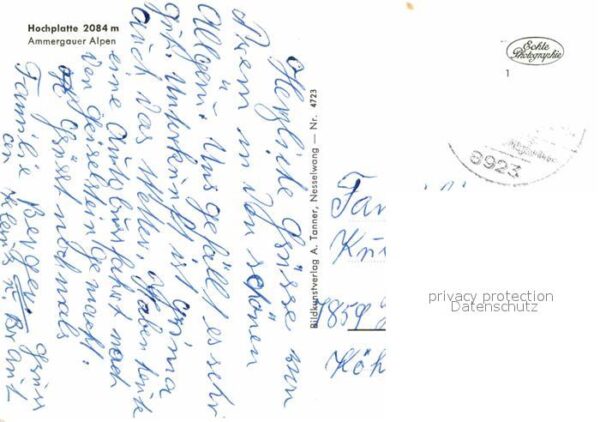 Hochplatte 2084 m
Ammergauer Alpen
Herzliche Grüsse vom
in den schönen
Allgäu. Uns gefällt es sehr
gut, Unterkunft ist prima
auch das Wetter. Haben heute
eine Autobusfahrt nach
den Geiselstein gemacht.
Grüsst nochmals
Familie Berger
Gruss
an Klaus u. Braut
Bildkunstverlag A. Tanner, Nesselwang — Nr. 4723
Echte
Photographie
1
8923
Fam
7859
Köh
privacy protection
Datenschutz